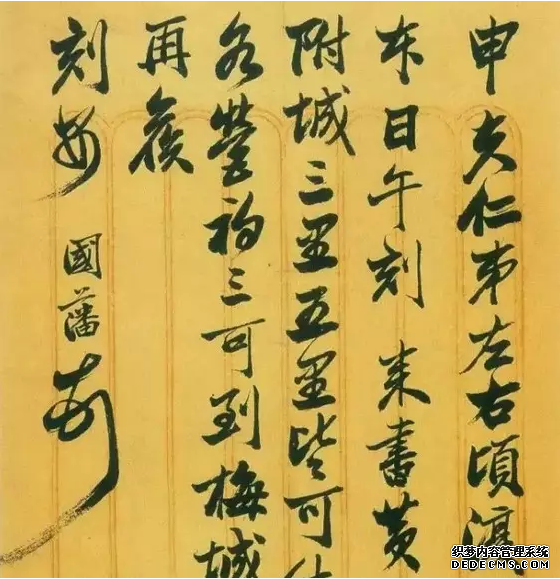 申夫仁弟左右頃
本日午刻來書黃
附城三里五里皆可
各營初三可到梅城
再候
刻安 國藩
织梦内容管理系统
DEDECMS.COM